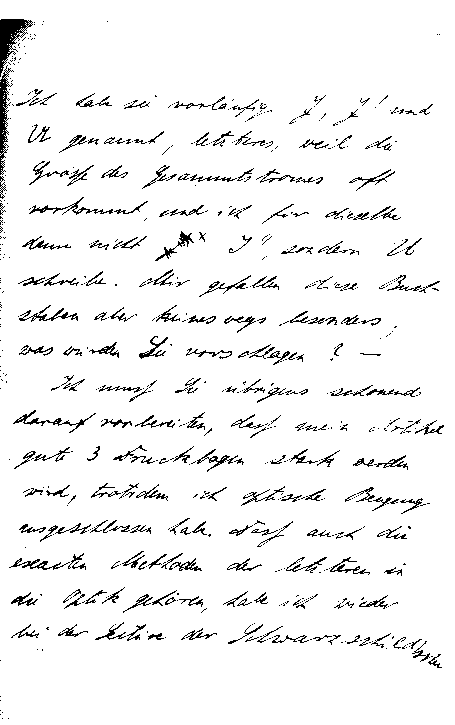 Ich habe sie vorläufig J, J' und
U genannt, letzteres, weil die
Grösse des Gesammtstromes oft
vorkommt, und ich für dieselbe
dann nicht J'', sondern U
schreibe. Mir gefallen diese Buch-
staben aber keineswegs besonders,
was würden Sie vorschlagen? —
Ich muss Sie übrigens schonend
darauf vorbereiten, dass mein Artikel
gute 3 Druckbogen stark werden
wird, trotzdem ich optische Beugung
ausgeschlossen habe. Dass auch die
exacten Methoden der letzteren in
die Optik gehören, habe ich wieder
bei der Lectüre der Schwarzschild'schen